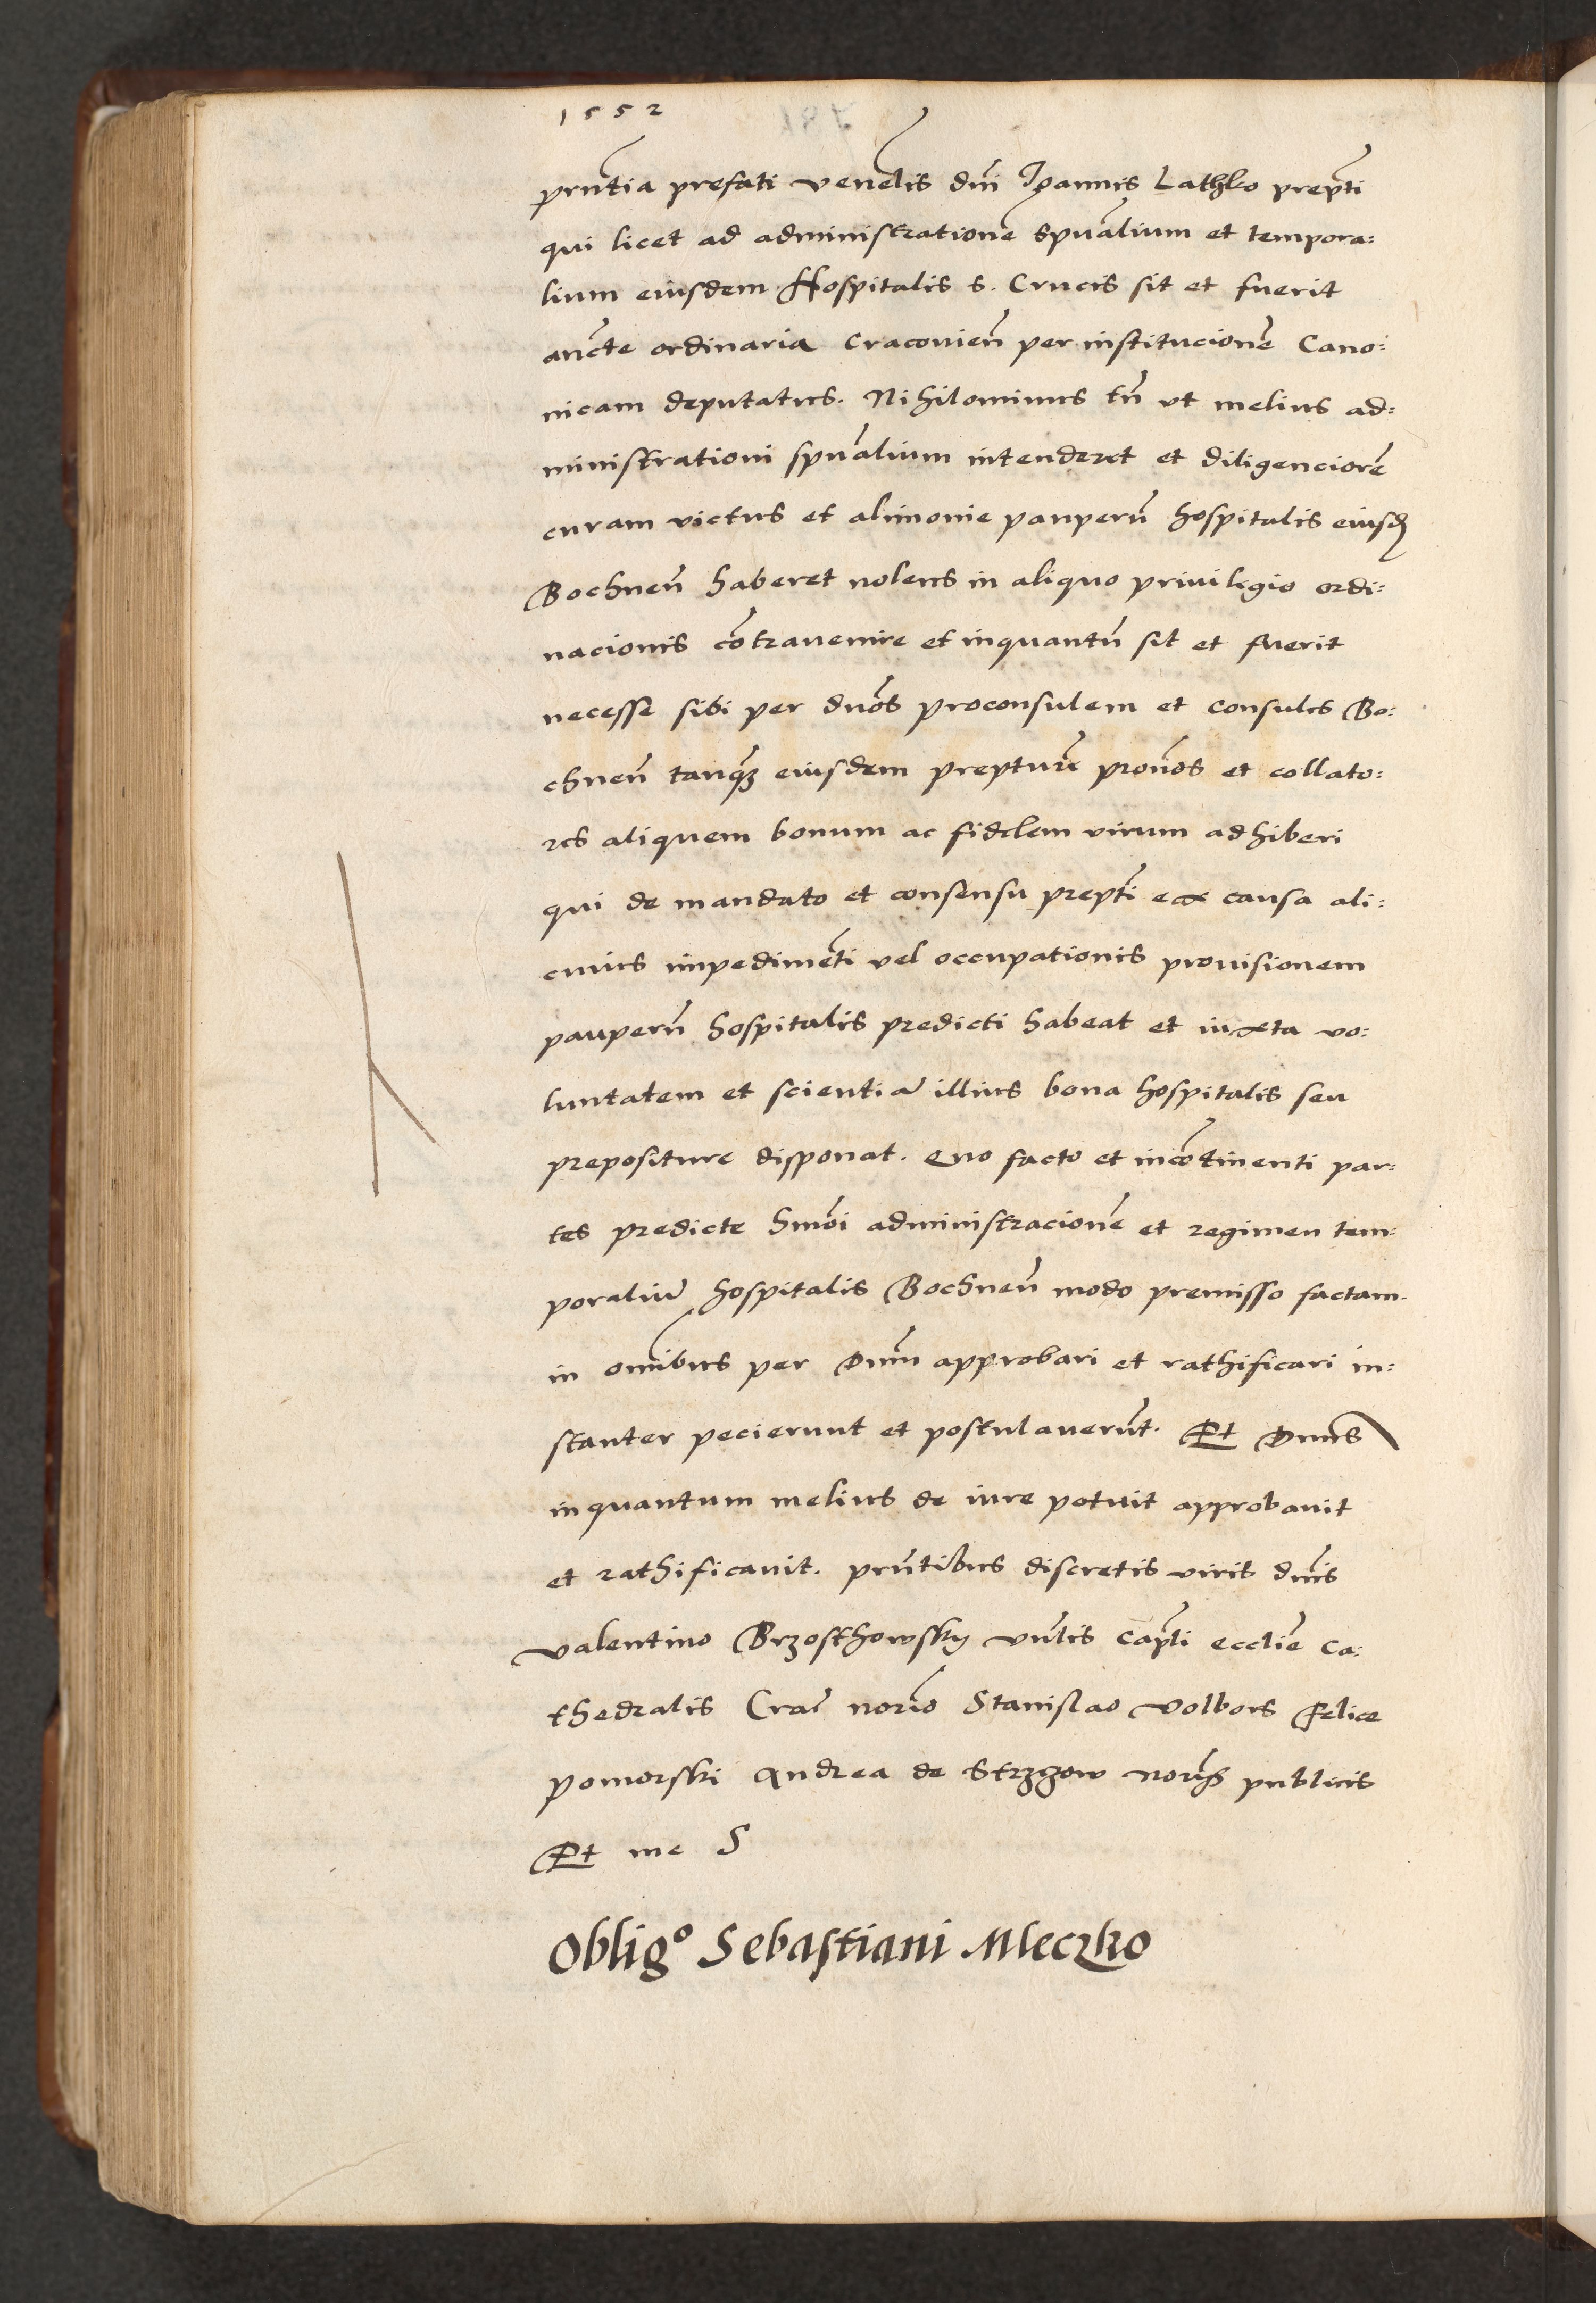 1552
prntia prefati venelis dni Joannis Lathko prepti
qui licet ad administrationē spualium et tempora:
lium eiusdem Hospitalis s. Crucis sit et fuerit
aucte ordinaria Cracovien per institucionē Cano:
nicam deputatus. Nihilominus tn ut melius ad:
ministrationi spualium intenderet et diligenciorē
curam victus et alimonie pauperū hospitalis eiusd
Bochnen haberet nolens in aliquo privilegio ordi:
nacionis cōtravenire et inquantū sit et fuerit
necesse sibi per dnos proconsulem et consules Bo:
chnen tanq̄ eiusdem prepture pronos et collato:
res aliquem bonum ac fidelem virum adhiberi
qui de mandato et consensu prepti ex causa ali:
cuius impedimēti vel occupationis provisionem
pauperū hospitalis predicti habeat et iuxta vo:
luntatem et scientiā illius bona hospitalis seu
prepositure disponat. Quo facto et incōtinenti par:
tes predicte hmoi administracionē et regimen tem:
poraliū hospitalis Bochnen modo premisso factam
in omībus per Dnm approbari et rathificari in:
stanter pecierunt et postulaverūt. Et Dnus
inquantum melius de iure potuit approbavit
et rathificavit. prntibus discretis viris dnis
Valentino Brzosthowsky vnlis capli ecclie ca:
thedralis Crac norio Stanislao Volbors Felice
Pomorski Andrea de Strzgow noriis publicis
Et me S
Obligo Sebastiani Mleczko